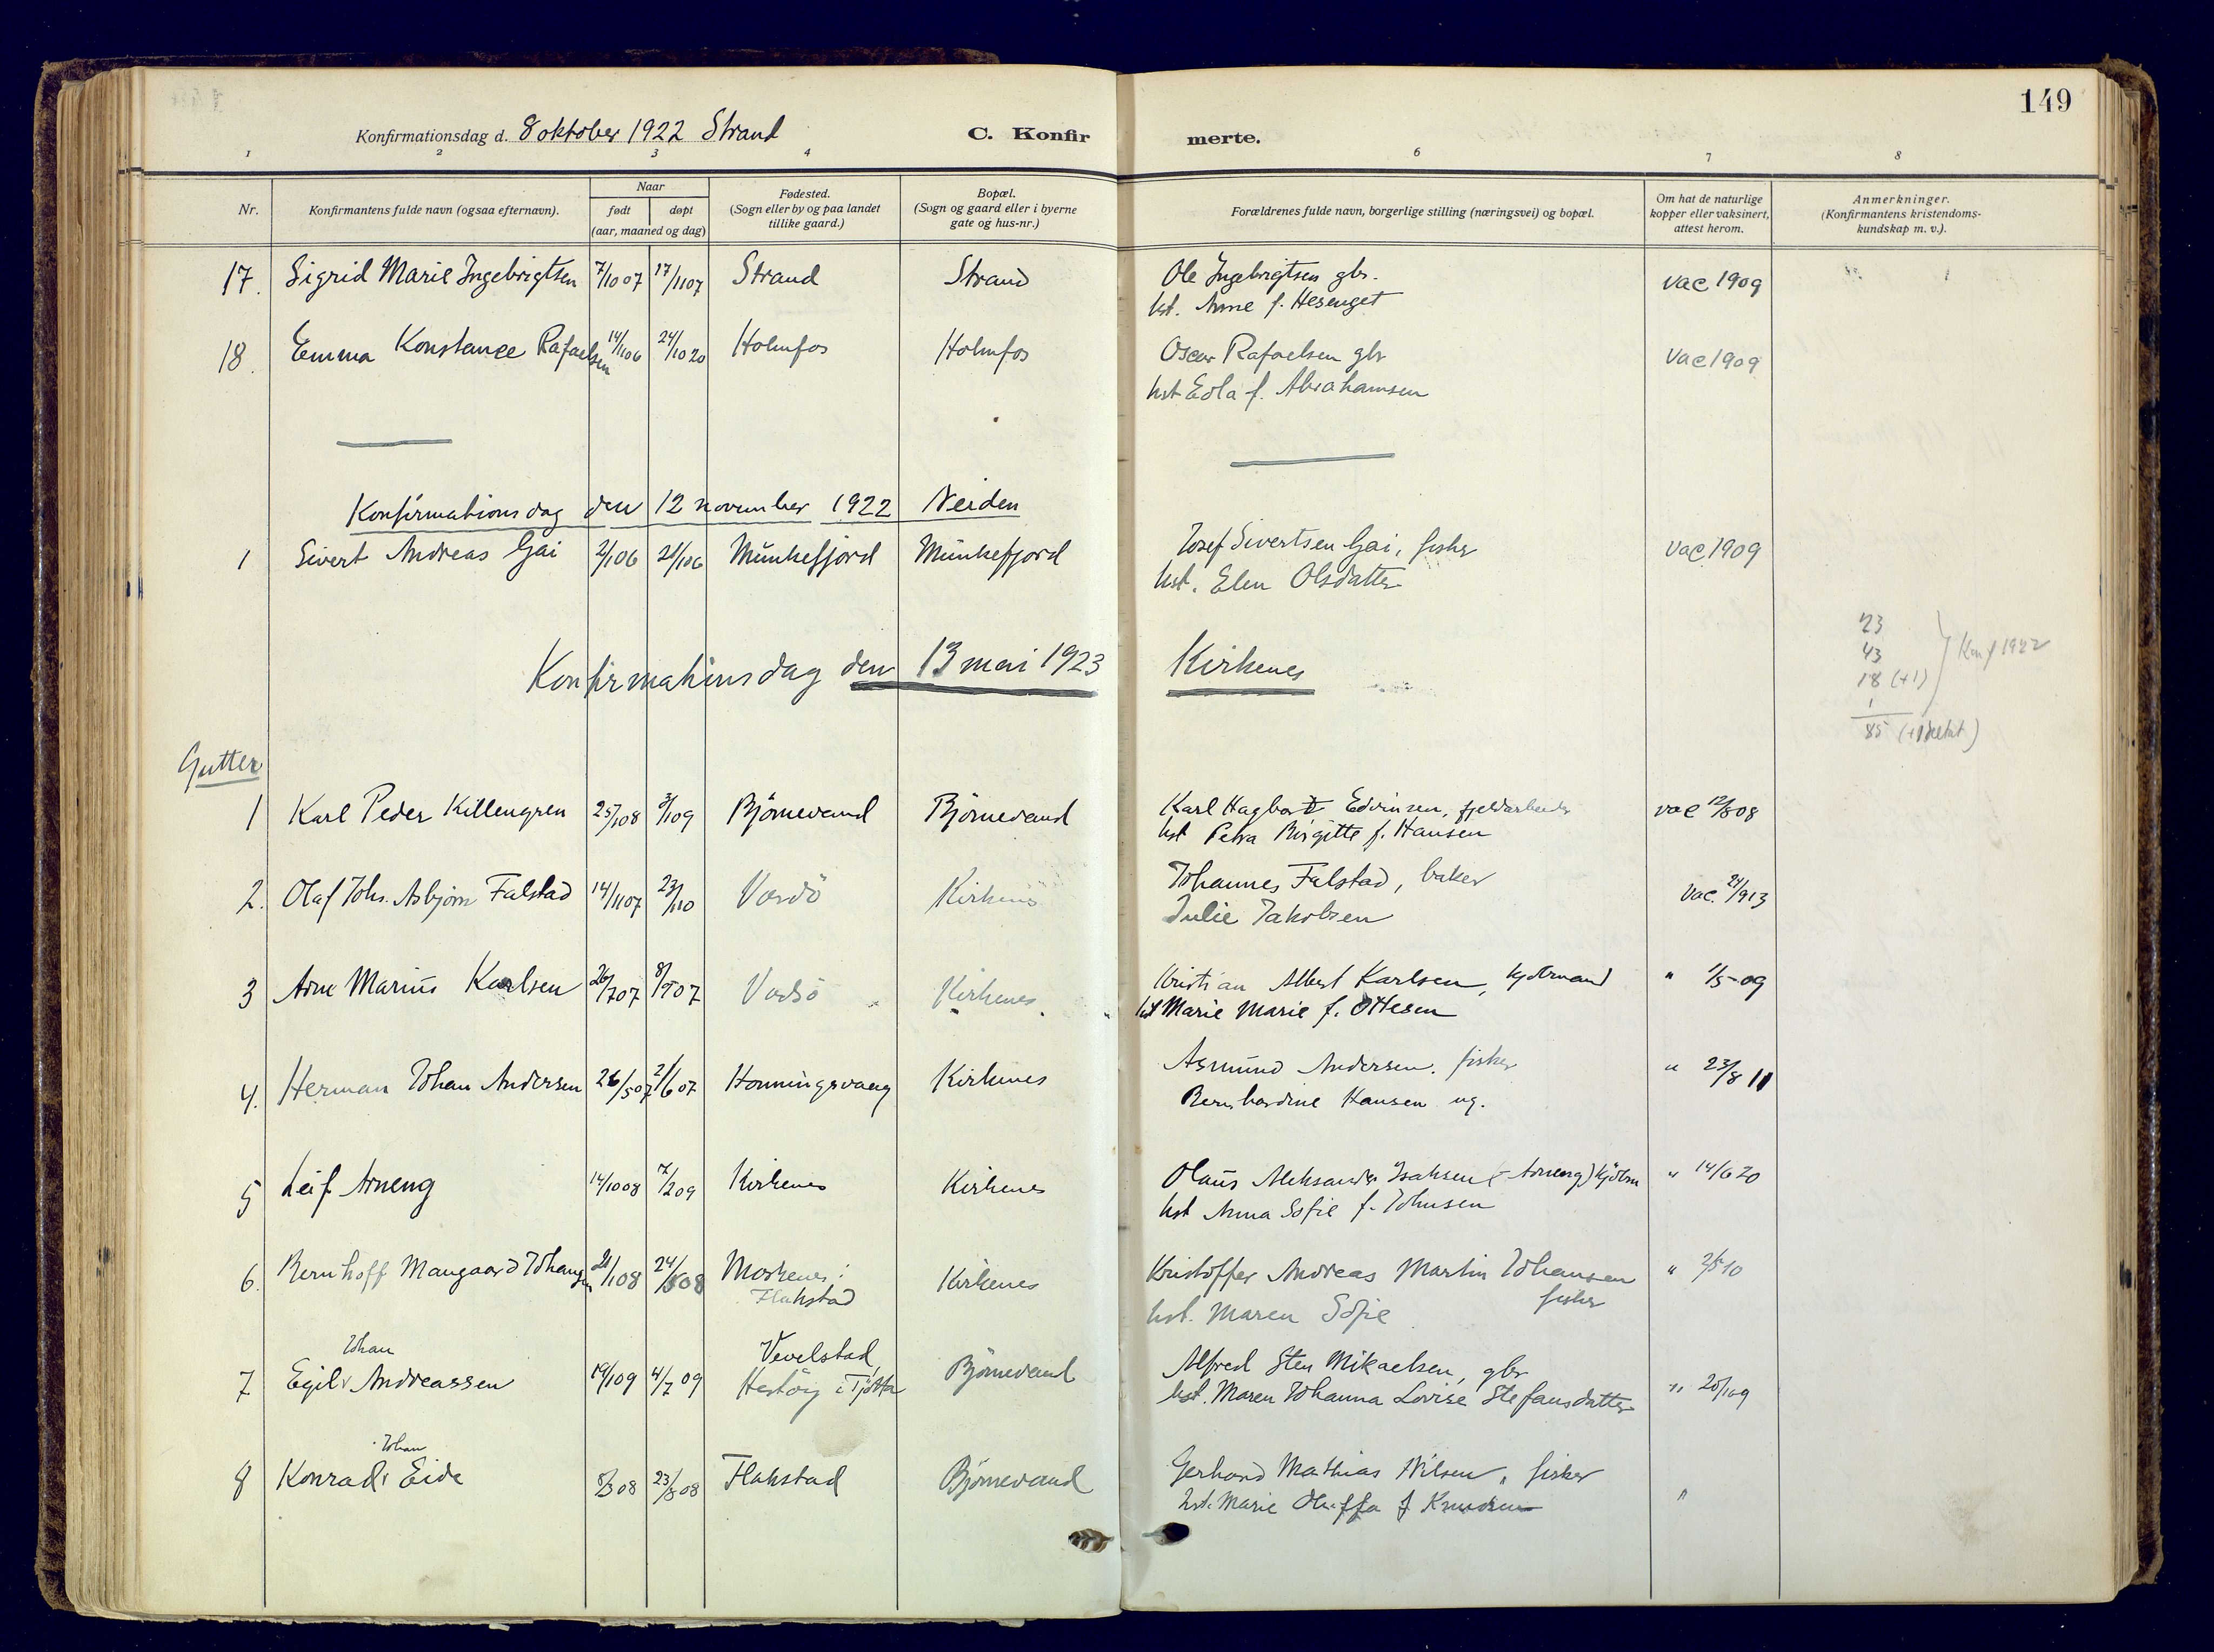 149
Konfirmationsdag d. 8 oktober 1922 Strand C. Konfir merte.
1 2 3 4 6 7 8
Nr. Konfirmantens fulde navn (ogsaa efternavn). Naar født døpt (aar, maaned og dag) Fødested. (Sogn eller by og paa landet tillike gaard.) Bopæl. (Sogn og gaard eller i byerne gate og hus-nr.) Forældrenes fulde navn, borgerlige stilling (næringsvei) og bopæl. Om hat de naturlige kopper eller vaksinert, attest herom. Anmerkninger. (Konfirmantens kristendoms- kundskap m. v.).
17. Sigrid Marie Ingebrigtsen 7/10 07 17/11 07 Strand Strand Ole Ingebrigtsen gbr. vac 1909
hst. Anne f. Hesenget
18. Emma Konstance Rafaelsen 14/11 06 24/10 20 Holmfos Holmfos Oscar Rafaelsen gbr vac 1909
hst Edla f. Abrahamsen
Konfirmationsdag den 12 november 1922 Neiden
1 Sivert Andreas Gai 2/1 06 21/1 06 Munkefjord Munkefjord Josef Sivertsen Gai, fisker vac 1909
hst. Elen Olsdatter
Konfirmationsdag den 13 mai 1923 Kirkenes
23
43
18 (+1)
1
Konf 1922
85
Gutter
1 Karl Peder Killengren 25/1 08 3/1 09 Björnevand Björnevand Karl Hagbart Edvinsen, fjeldarbeider vac 12/8 08
hst Petra Birgitte f. Hansen
2. Olaf Johs. Asbjørn Falstad 14/11 07 23/1 10 Vardö Kirkenes Johannes Falstad, baker vac. 24/9 13
Julie Jakobsen
3 Arne Marius Karlsen 26/7 07 8/9 07 Vadsö Kirkenes Kristian Albert Karlsen, kjöbmand " 1/5-09
hst Marie Marie f. Ottesen
4. Herman Johan Andersen 26/5 07 2/6 07 Honningsvaag Kirkenes Asmund Andersen. fisker " 23/8 11
Bernhardine Hansen ug.
5 Leif Arneng 14/10 08 7/2 09 Kirkenes Kirkenes Olaus Aleksander Isaksen (- Arneng) kjöbm " 14/6 20
hst Anna Sofie f. Johnsen
6. Bernhoff Mangaard Johansen 21/1 08 24/5 08 Moskenes i Kirkenes Kristoffer Andreas Martin Johansen " 2/5 10
Flakstad fisker
hst. Maren Sofie
Johan Vevelstad
7 Egil Andreassen 19/1 09 4/7 09 Hestöy i Tjötta Björnevand Alfred Sten Mikaelsen, gbr " 20/1 09
hst. Maren Johanna Lovise Stefansdatter
Johan
8 Konrad Eide 8/3 08 23/8 08 Flakstad Björnevand Gerhard Mathias Nilsen, fisker "
hst. Marie f Knudsen